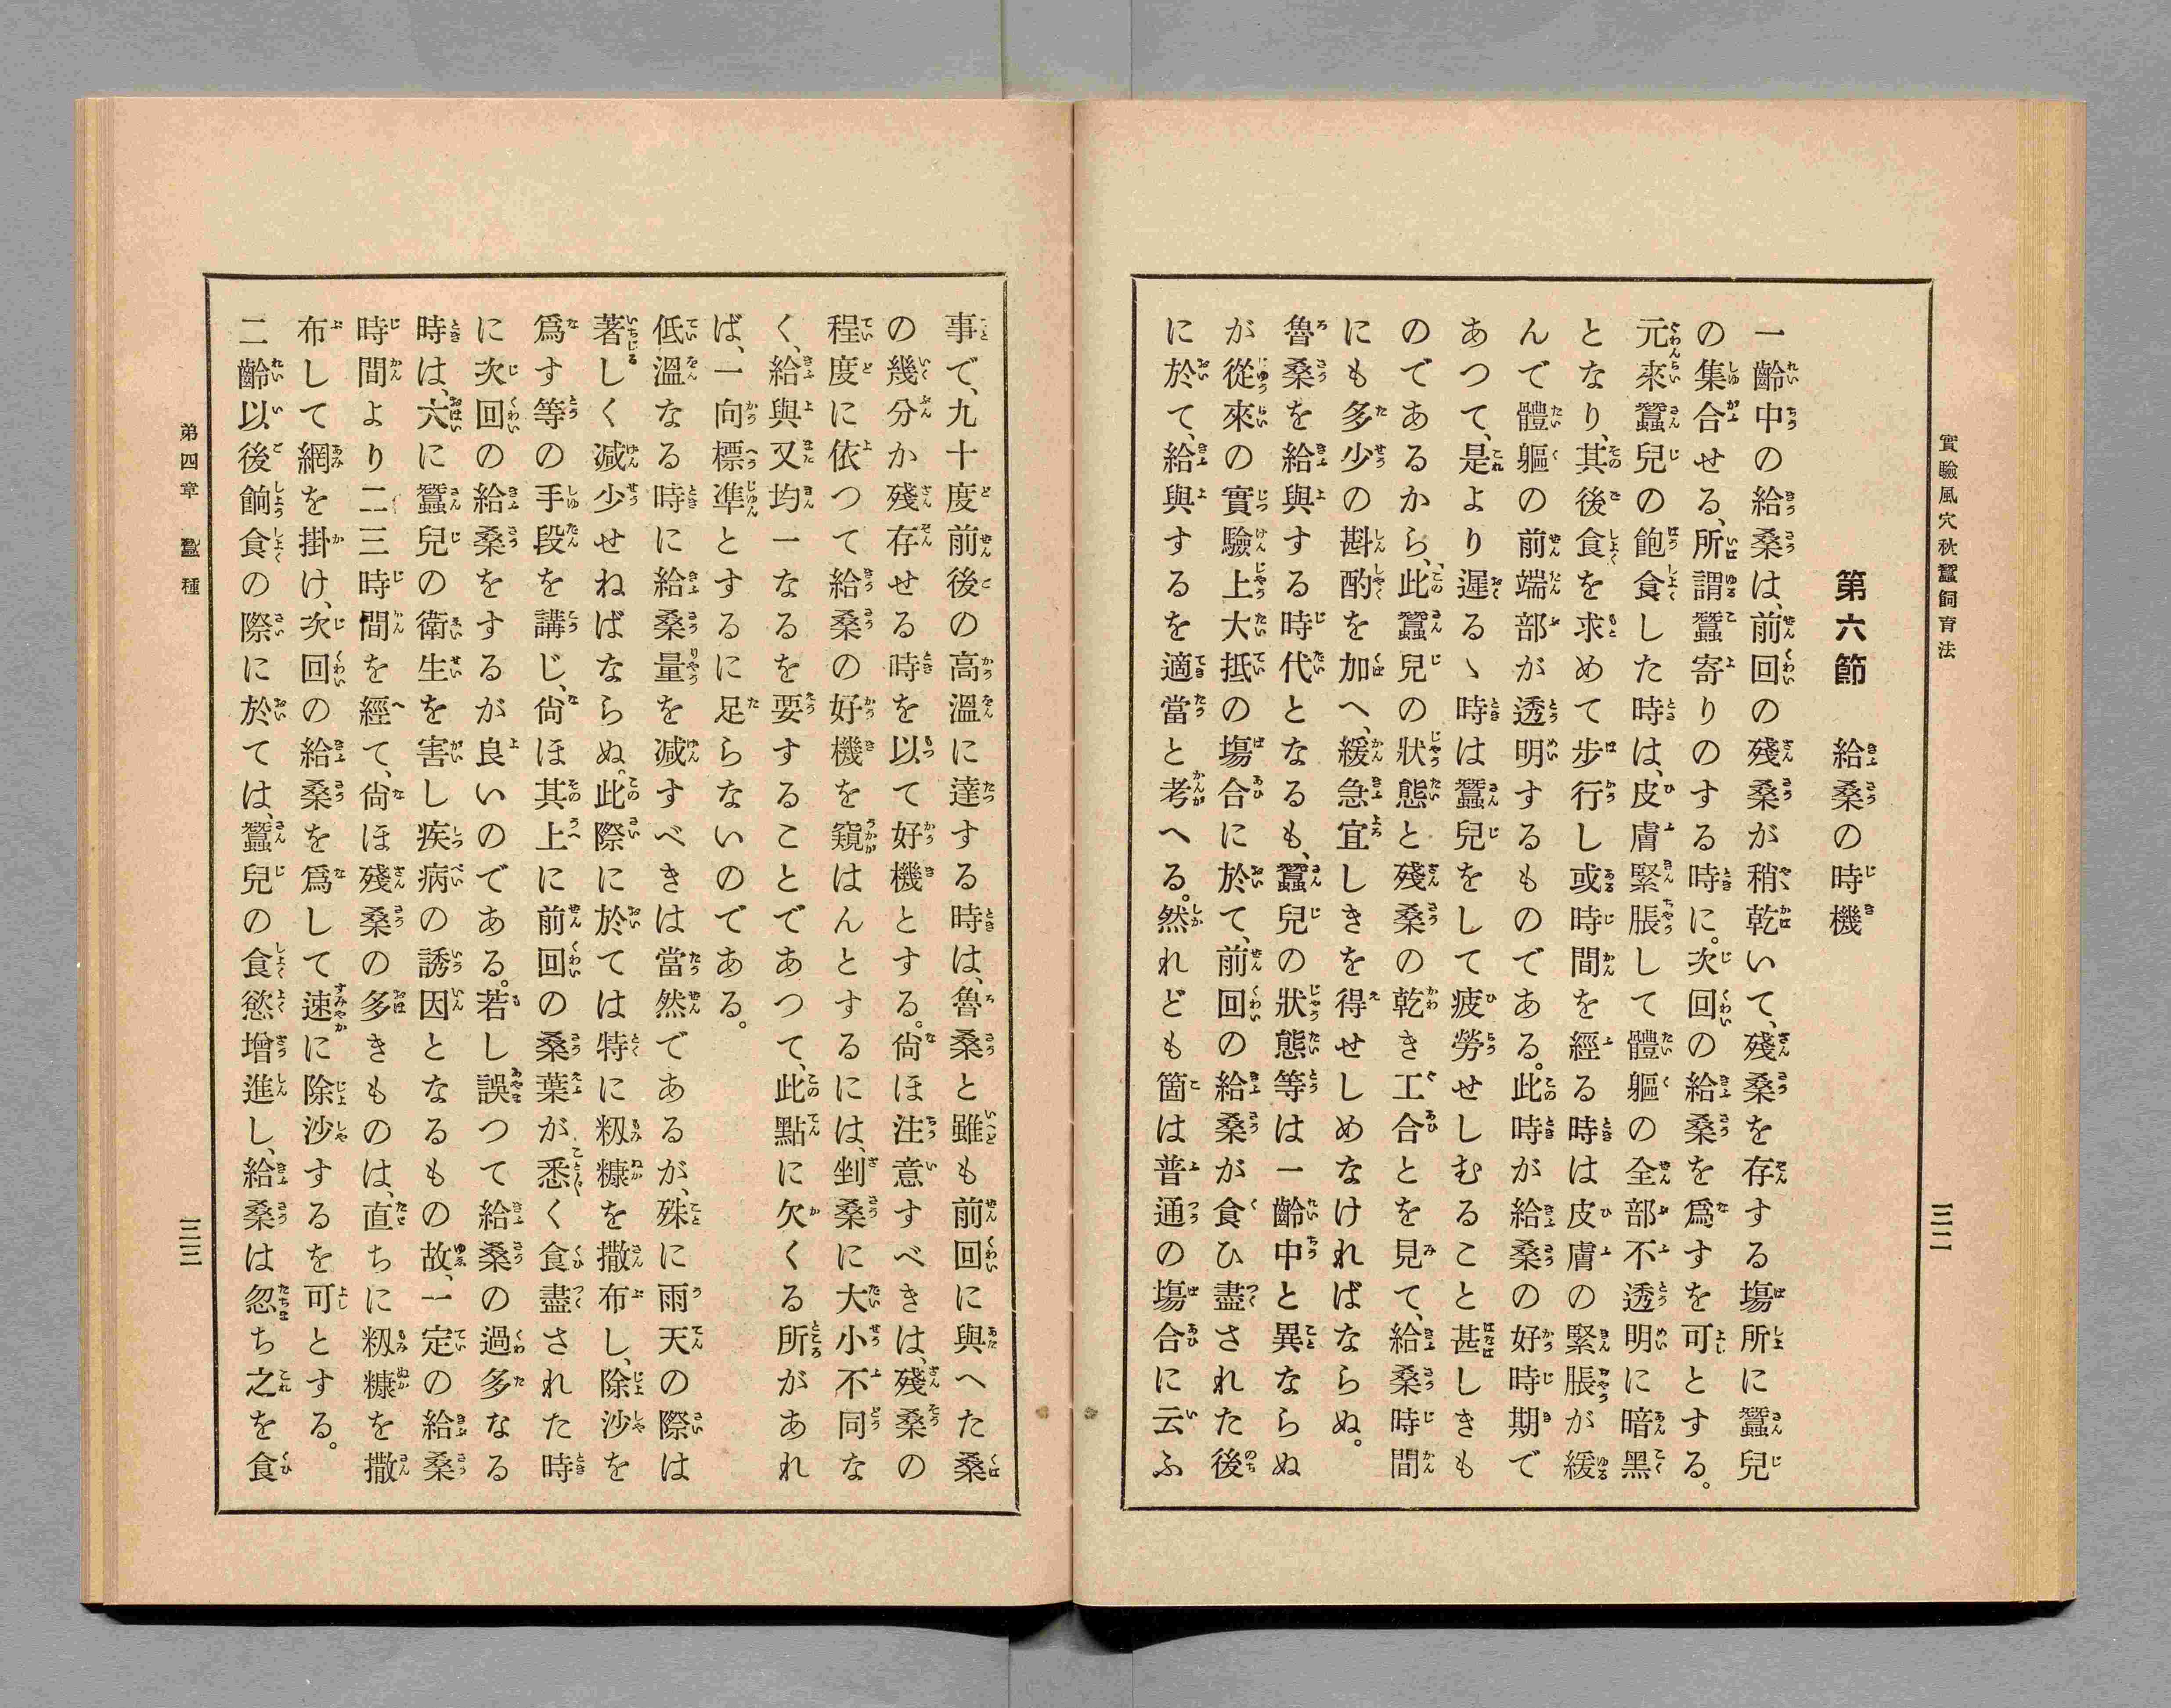 實驗風穴秋蠶飼育法
三二
第六節　給桑の時機
一齡中の給桑は、前回の殘桑が稍乾いて、殘桑を存する塲所に蠶兒
の集合せる、所謂蠶寄りのする時に。次回の給桑を爲すを可とする。
元來蠶兒の飽食した時は、皮膚緊脹して體軀の全部不透明に暗黑
となり、其後食を求めて步行し或時間を經る時は皮膚の緊脹が緩
んで體軀の前端部が透明するものである。此時が給桑の好時期で
あつて、是より遲るゝ時は蠶兒をして疲勞せしむること甚しきも
のであるから、此蠶兒の狀態と殘桑の乾き工合とを見て、給桑時間
にも多少の斟酌を加へ、緩急宜しきを得せしめなければならぬ。
魯桑を給與する時代となるも、蠶兒の狀態等は一齡中と異ならぬ
が從來の實驗上大抵の塲合に於て、前回の給桑が食ひ盡された後
に於て、給與するを適當と考へる。然れども箇は普通の塲合に云ふ
事で、九十度前後の高溫に達する時は、魯桑と雖も前回に與へた桑
の幾分か殘存せる時を以て好機とする。尙ほ注意すべきは、殘桑の
程度に依つて給桑の好機を窺はんとするには、剉桑に大小不同な
く、給與又均一なるを要することであつて、此點に欠くる所があれ
ば、一向標準とするに足らないのである。
低溫なる時に給桑量を減すべきは當然であるが、殊に雨天の際は
著しく減少せねばならぬ。此際に於ては特に籾糠を撒布し、除沙を
爲す等の手段を講じ、尙ほ其上に前回の桑葉が悉く食盡された時
に次回の給桑をするが良いのである。若し誤つて給桑の過多なる
時は、大に蠶兒の衛生を害し疾病の誘因となるもの故、一定の給桑
時間より二三時間を經て、尙ほ殘桑の多きものは、直ちに籾糠を撒
布して網を掛け、次回の給桑を爲して速に除沙するを可とする。
二齡以後餉食の際に於ては、蠶兒の食慾增進し、給桑は忽ち之を食
弟四章　蠶種
三三